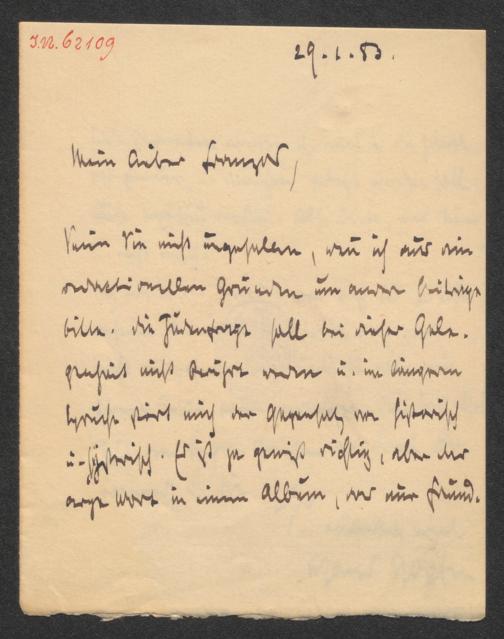 I.N. 62109
29.1.83.
Mein lieber Franzos,
Seien Sie nicht ungehalten, wenn ich aus rein
redactionellen Gründen um andere Beiträge
bitte. Die Judenfrage soll bei dieser Gele-
genheit nicht berührt werden u. im längeren
Spruche stört mich der Gegensatz von historisch
u. hysterisch. Es ist ja gewiß richtig, aber das
arge Wort in einem Album, das nur freund-